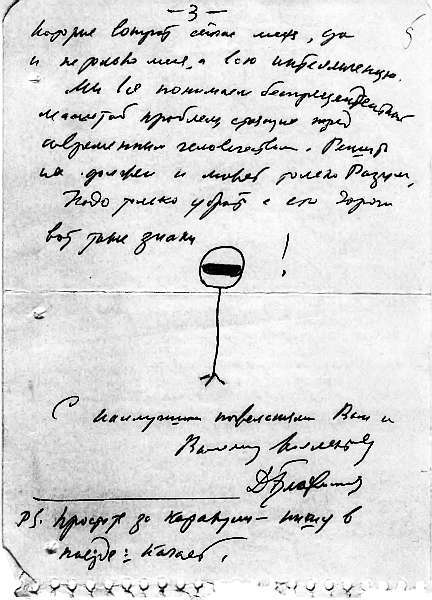 - 3 -
которые волнуют сейчас меня, да
и не только меня, а всю интеллигенцию.
Мы все понимаем беспрецедентный
масштаб проблем, стоящие перед
современным человечеством. Решить
их должен и может только Разум,
Надо только убрать с его дороги
вот такие знаки !
С наилучшими пожеланиями Вам и
Вашему коллективу
P.S. Простите за каракули – пишу в
поезде: качает.